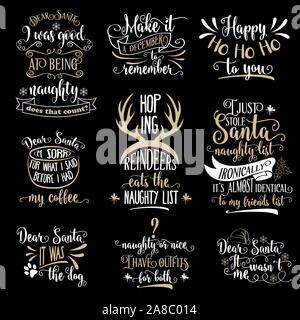 DEAR SANTA
I was good
AT BEING
naughty
does that count?
Make it
A DECEMBER
to
remember
Happy
HO HO HO
to you
Dear Santa
I'M SORRY
FOR WHAT I SAID
BEFORE I HAD
my coffee
HOP
ING
REINDEERS
eats the
NAUGHTY LIST
I JUST
stole
Santa
naughty list
IRONICALLY
IT'S ALMOST identical
to my friends list
Dear Santa
IT WAS
the dog
?
naughty or nice,
I HAVE OUTFITS
for both
Dear Santa
It wasn't
me
alamy
Image ID: 2A8C014
www.alamy.com